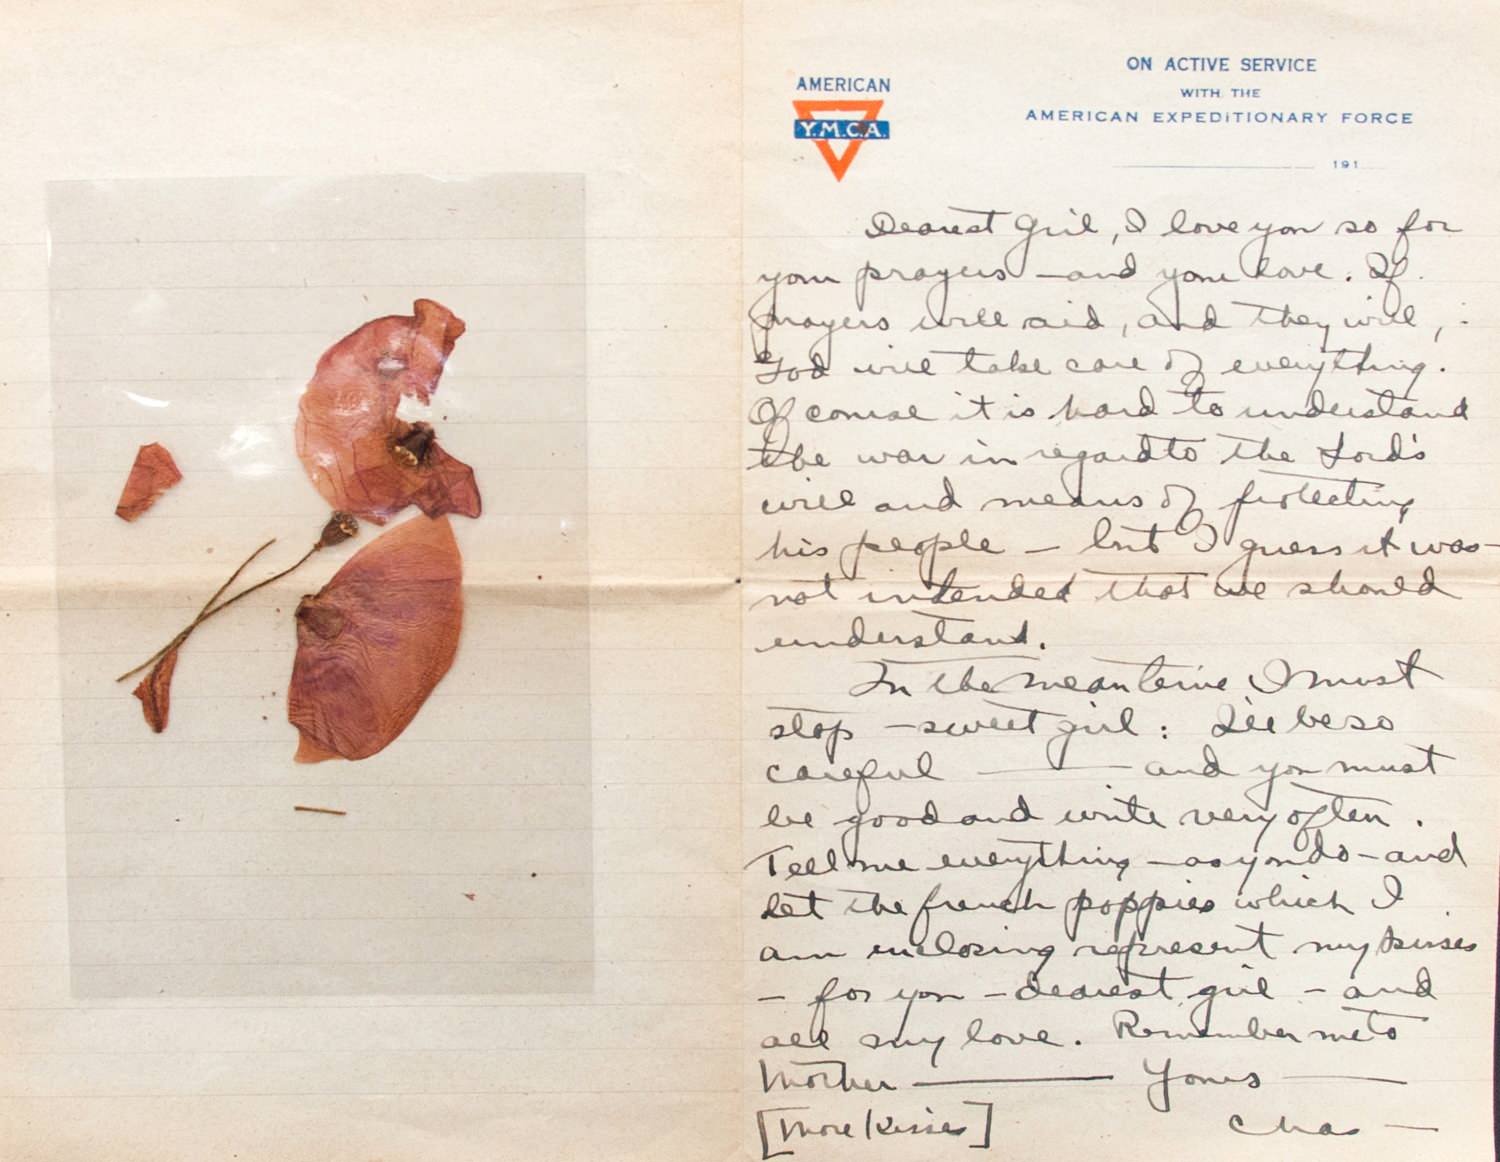 AMERICAN
Y.M.C.A.
ON ACTIVE SERVICE
WITH THE
AMERICAN EXPEDITIONARY FORCE
191
Dearest Girl, I love you so for
your prayers — and your love. If
prayers will aid, and they will,
God will take care of everything.
Of course it is hard to understand
the war in regard to the Lord's
will and means of protecting
his people — but I guess it was
not intended that we should
understand.
In the meantime I must
stop — sweet girl: I'll be so
careful — and you must
be good and write very often.
Tell me everything — as you do — and
let the french poppies which I
am enclosing represent my kisses
— for you — dearest girl — and
all my love. Remember me to
Mother — Yours —
[More Kisses] Chas —